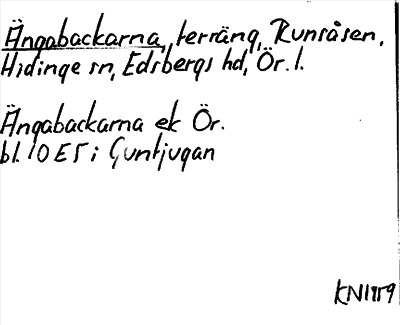 Ängabackarna, terräng, Runsåsen,
Hidinge sn, Edsbergs hd, Ör. l.
Ängabackarna ek Ör.
bl. 10 E 5 i
KN1959